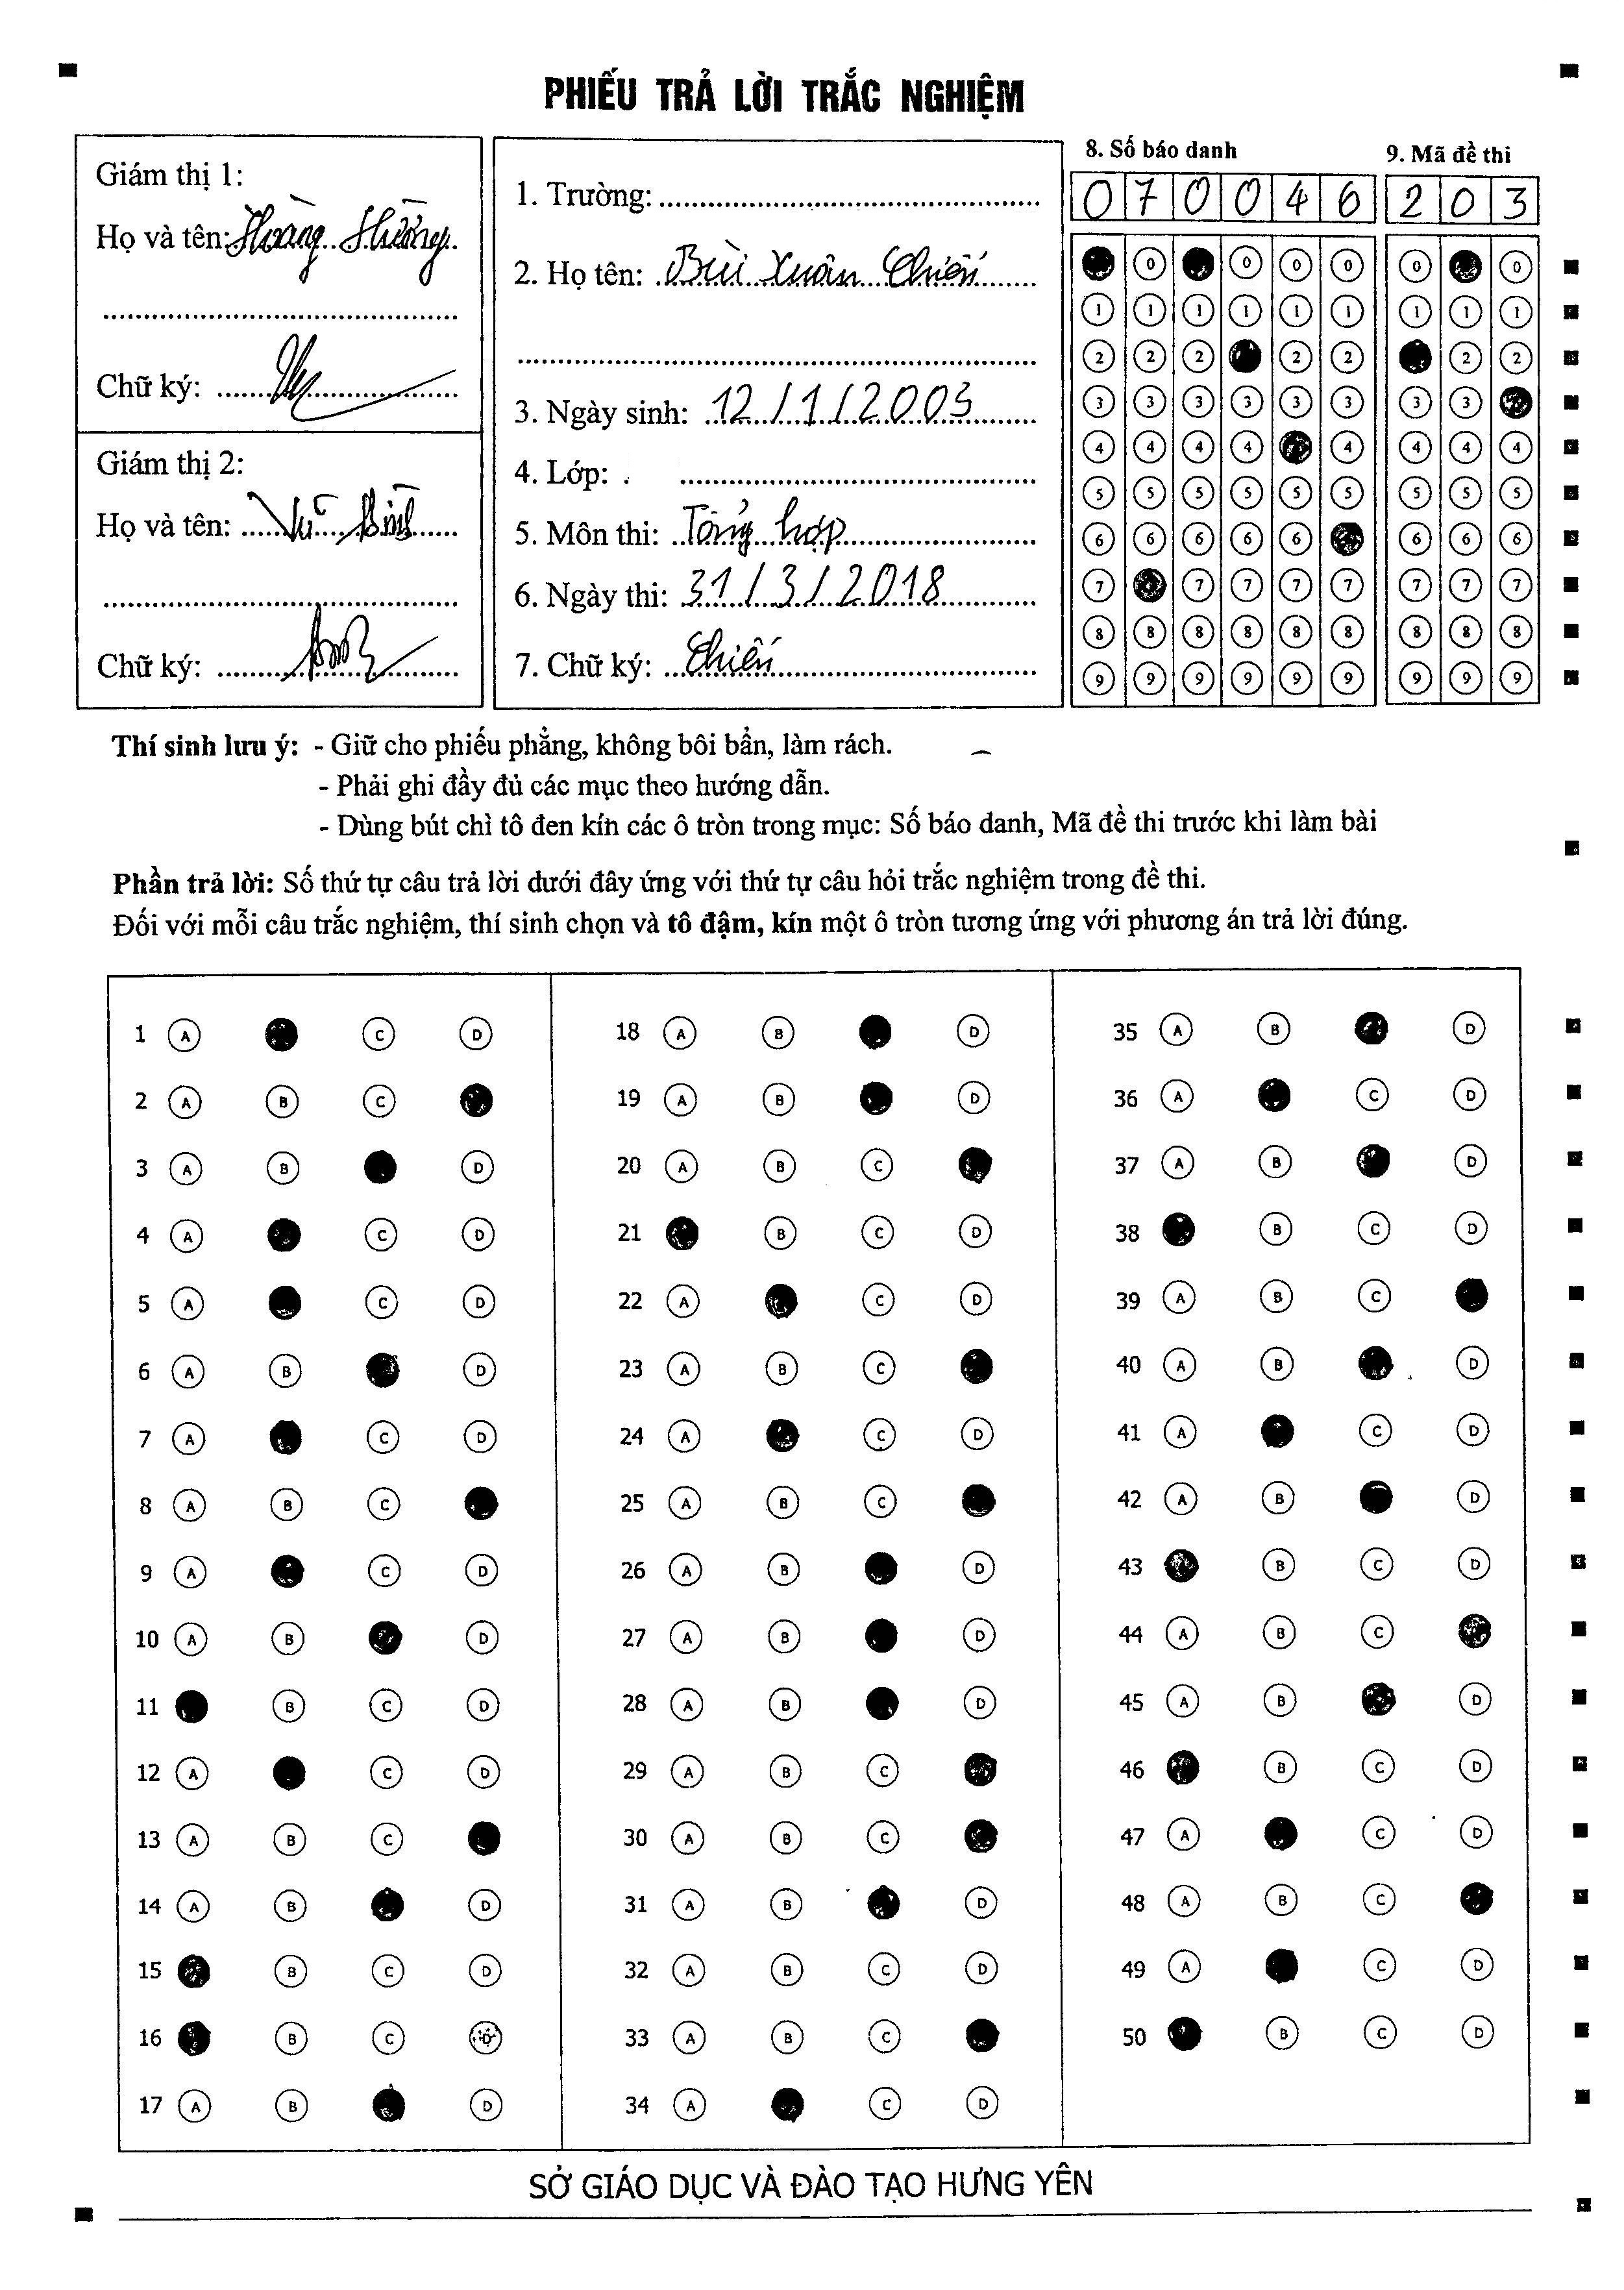 PHIẾU TRẢ LỜI TRẮC NGHIỆM
Giám thị 1:
Họ và tên: Hoàng Hường
Chữ ký:
Giám thị 2:
Họ và tên: Vũ Bình
Chữ ký:
1. Trường:
2. Họ tên: Bùi Xuân Chiến
3. Ngày sinh: 12/1/2003
4. Lớp:
5. Môn thi: Tổng hợp
6. Ngày thi: 31/3/2018
7. Chữ ký: Chiến
8. Số báo danh
070046
9. Mã đề thi
203
0 0 0 0 0 0
1 1 1 1 1 1 1 1 1
2 2 2 2 2 2 2
3 3 3 3 3 3 3 3
4 4 4 4 4 4 4 4
5 5 5 5 5 5 5 5 5
6 6 6 6 6 6 6 6
7 7 7 7 7 7 7 7
8 8 8 8 8 8 8 8 8
9 9 9 9 9 9 9 9 9
Thí sinh lưu ý: - Giữ cho phiếu phẳng, không bôi bẩn, làm rách.
- Phải ghi đầy đủ các mục theo hướng dẫn.
- Dùng bút chì tô đen kín các ô tròn trong mục: Số báo danh, Mã đề thi trước khi làm bài
Phần trả lời: Số thứ tự câu trả lời dưới đây ứng với thứ tự câu hỏi trắc nghiệm trong đề thi.
Đối với mỗi câu trắc nghiệm, thí sinh chọn và tô đậm, kín một ô tròn tương ứng với phương án trả lời đúng.
1 A C D
2 A B C
3 A B D
4 A C D
5 A C D
6 A B D
7 A C D
8 A B C
9 A C D
10 A B D
11 B C D
12 A C D
13 A B C
14 A B D
15 B C D
16 B C D
17 A B D
18 A B D
19 A B D
20 A B C
21 B C D
22 A C D
23 A B C
24 A C D
25 A B C
26 A B D
27 A B D
28 A B D
29 A B C
30 A B C
31 A B D
32 A B C D
33 A B C
34 A C D
35 A B D
36 A C D
37 A B D
38 B C D
39 A B C
40 A B D
41 A C D
42 A B D
43 B C D
44 A B C
45 A B D
46 B C D
47 A C D
48 A B C
49 A C D
50 B C D
SỞ GIÁO DỤC VÀ ĐÀO TẠO HƯNG YÊN